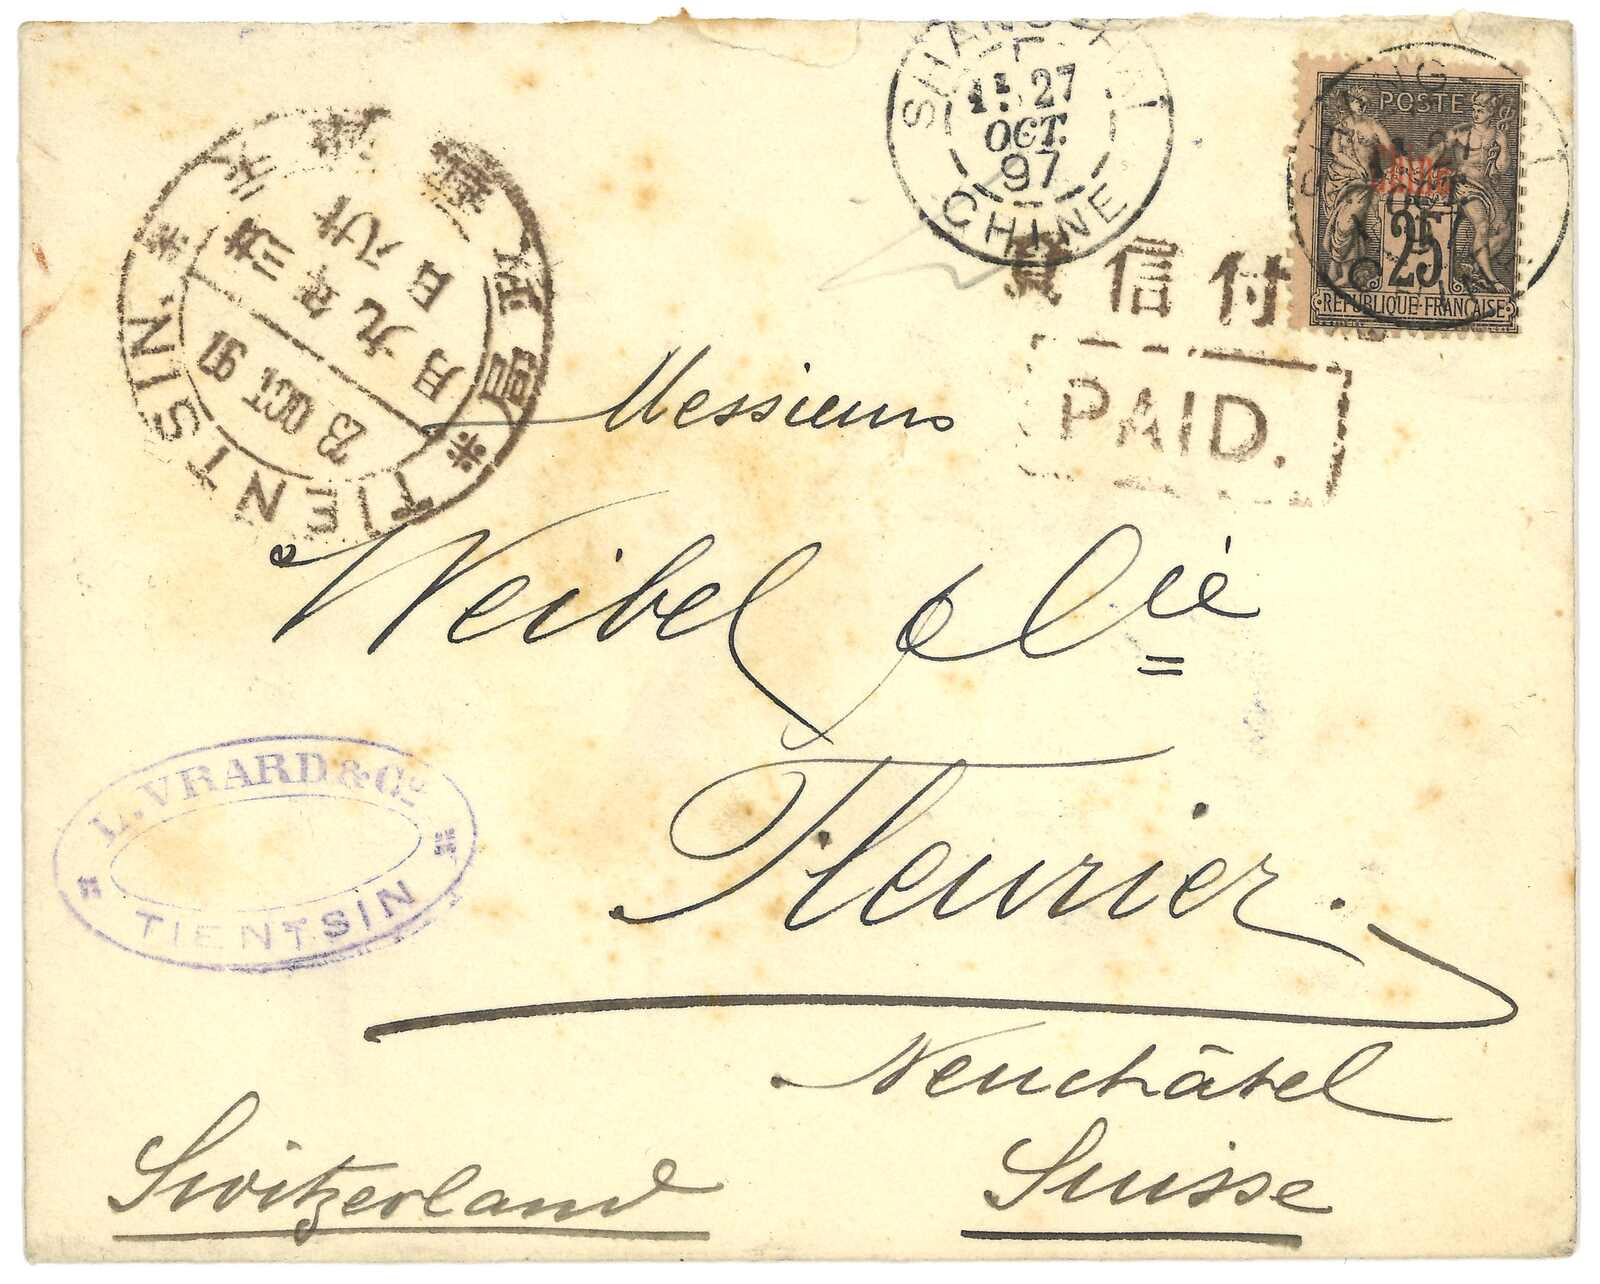 SHANG-HAI
1E 27
OCT.
97
CHINE
POSTE
Chine
25
REPUBLIQUE FRANÇAISE
資信付
PAID.
TIENTSIN.
23 OCT. 97
月九年三
日八廿
Messieurs
Weibel & Cie
Fleurier.
Neuchâtel
Suisse
Switzerland
L. VRARD & Co
TIENTSIN